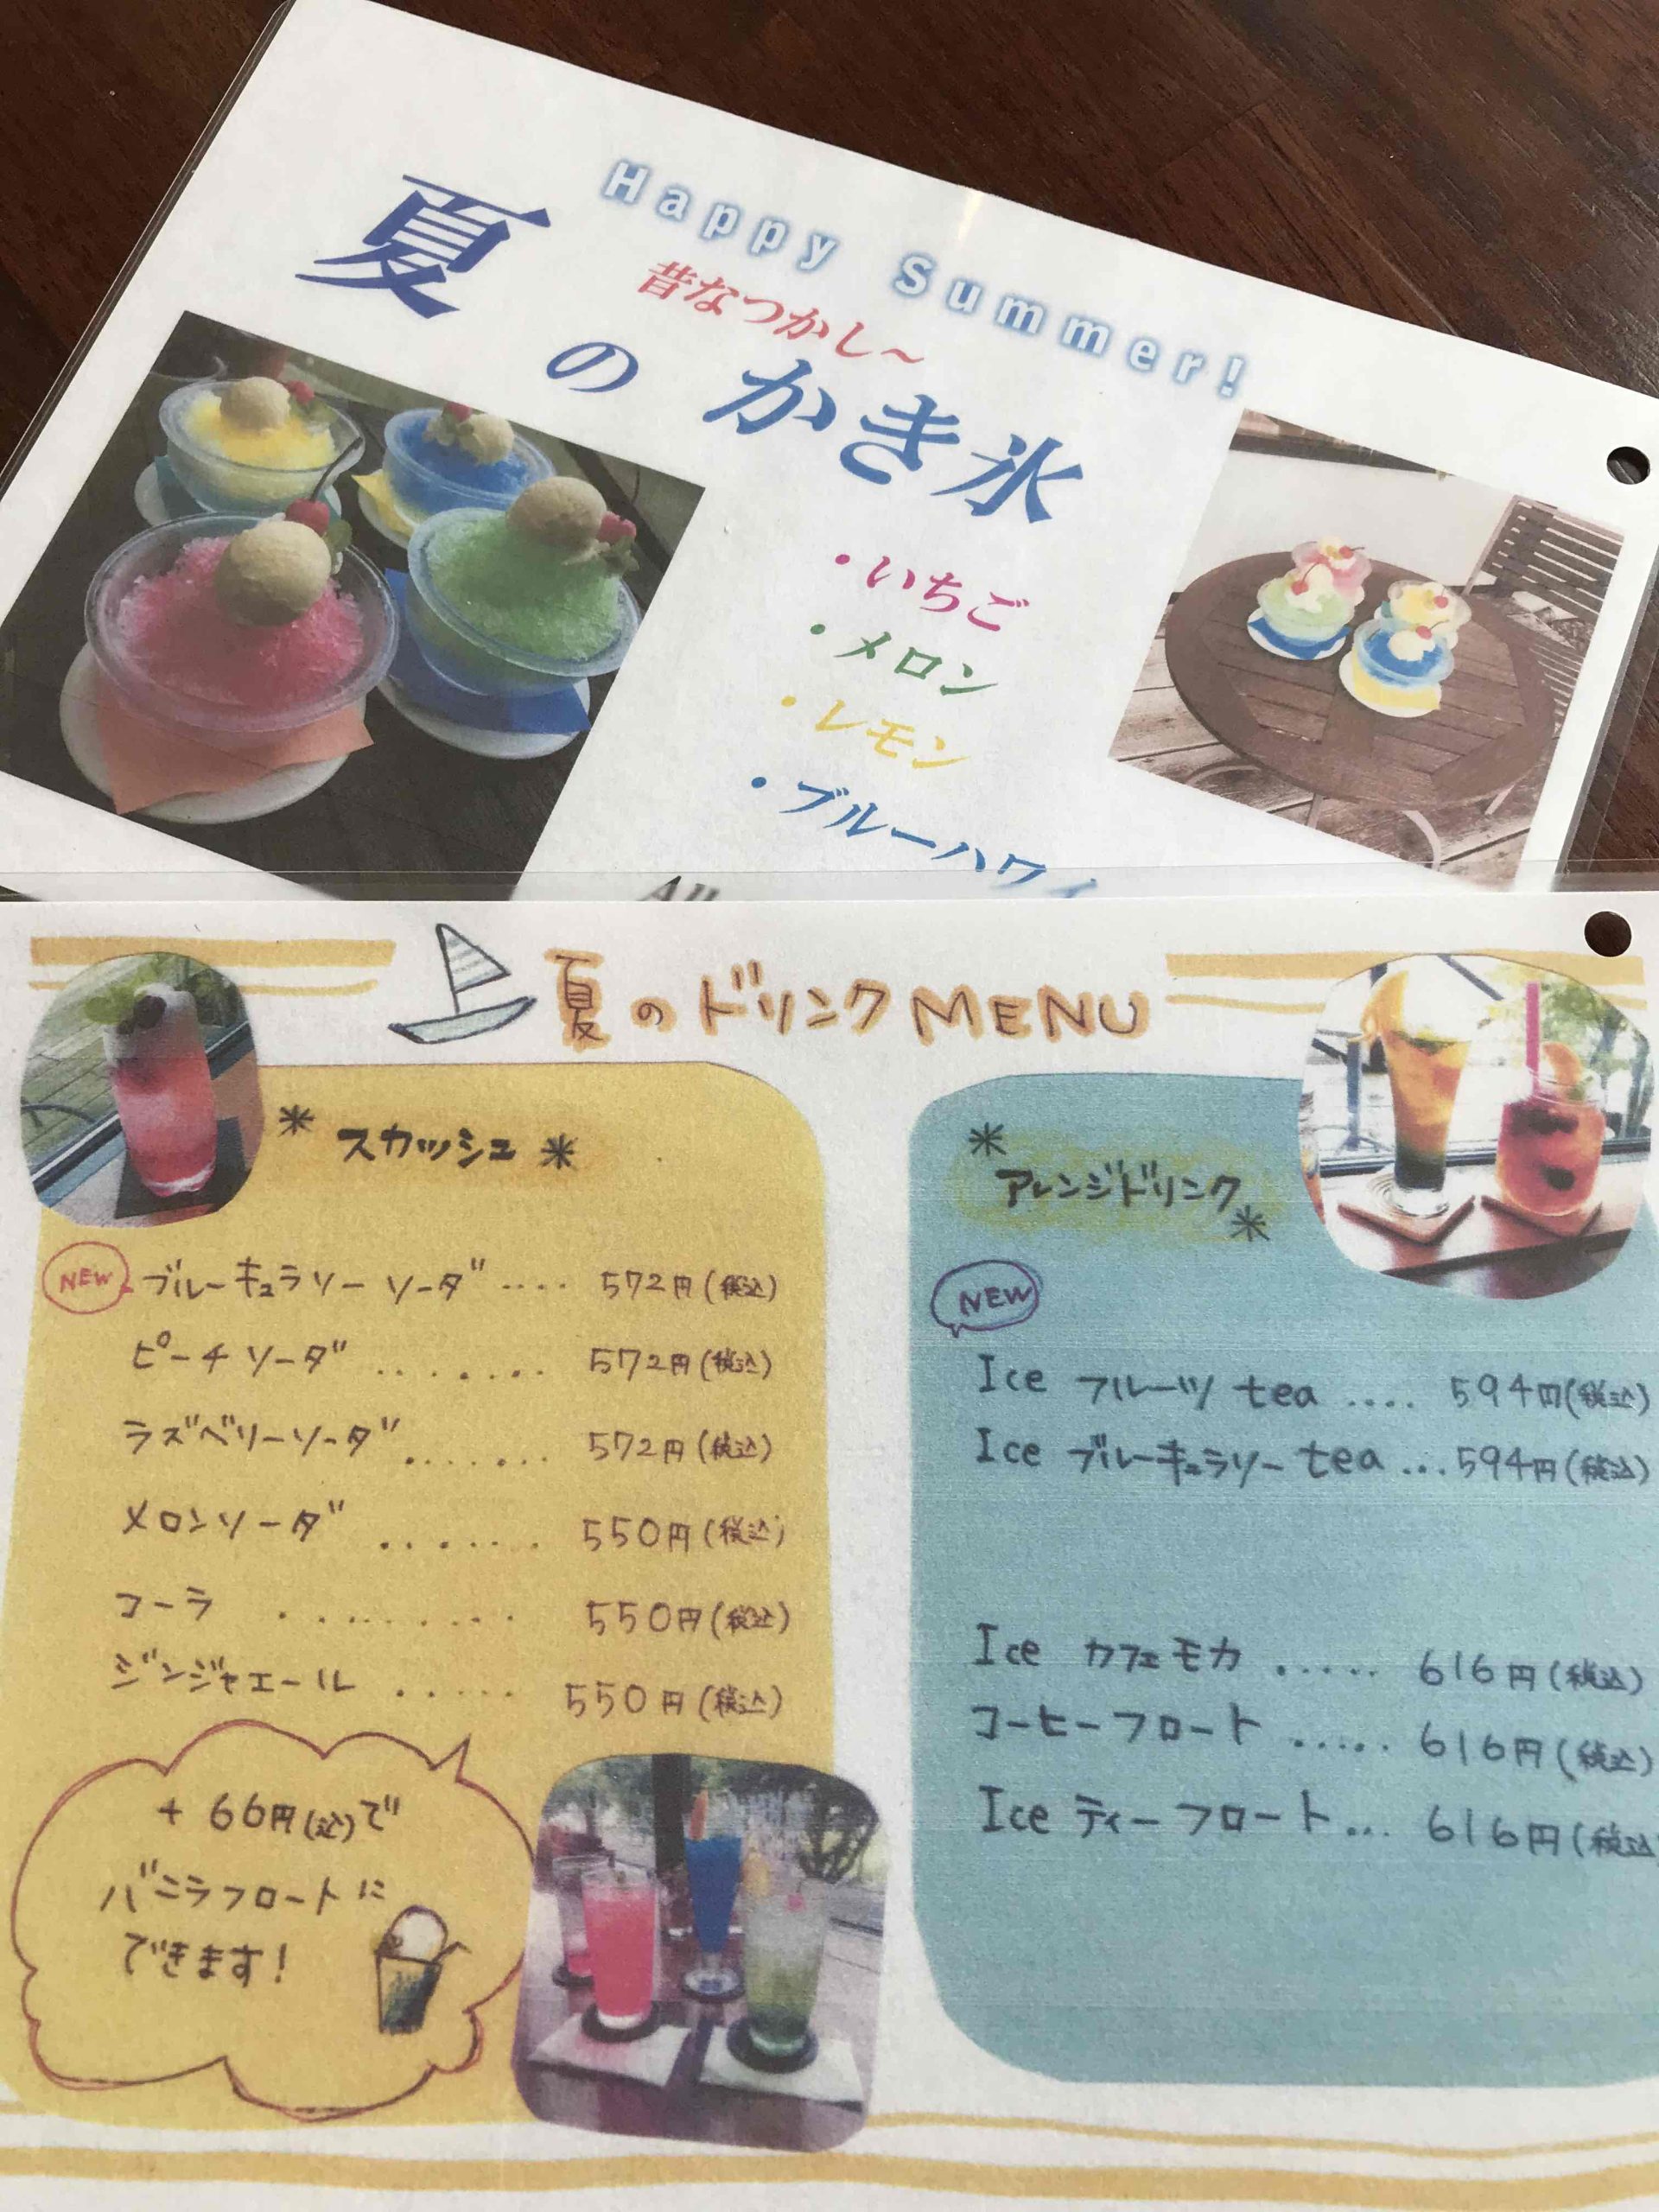 Happy Summer!
昔なつかし～
夏のかき氷
・いちご
・メロン
・レモン
・ブルーハワイ
All
夏のドリンクMENU
＊スカッシュ＊
NEW ブルーキュラソーソーダ.... 572円(税込)
ピーチソーダ........ 572円(税込)
ラズベリーソーダ....... 572円(税込)
メロンソーダ...... 550円(税込)
コーラ......... 550円(税込)
ジンジャエール..... 550円(税込)
+66円(込)で
バニラフロートに
できます!
＊アレンジドリンク＊
NEW
Ice フルーツtea.... 594円(税込)
Ice ブルーキュラソーtea...594円(税込)
Ice カフェモカ..... 616円(税込)
コーヒーフロート..... 616円(税込)
Ice ティーフロート... 616円(税込